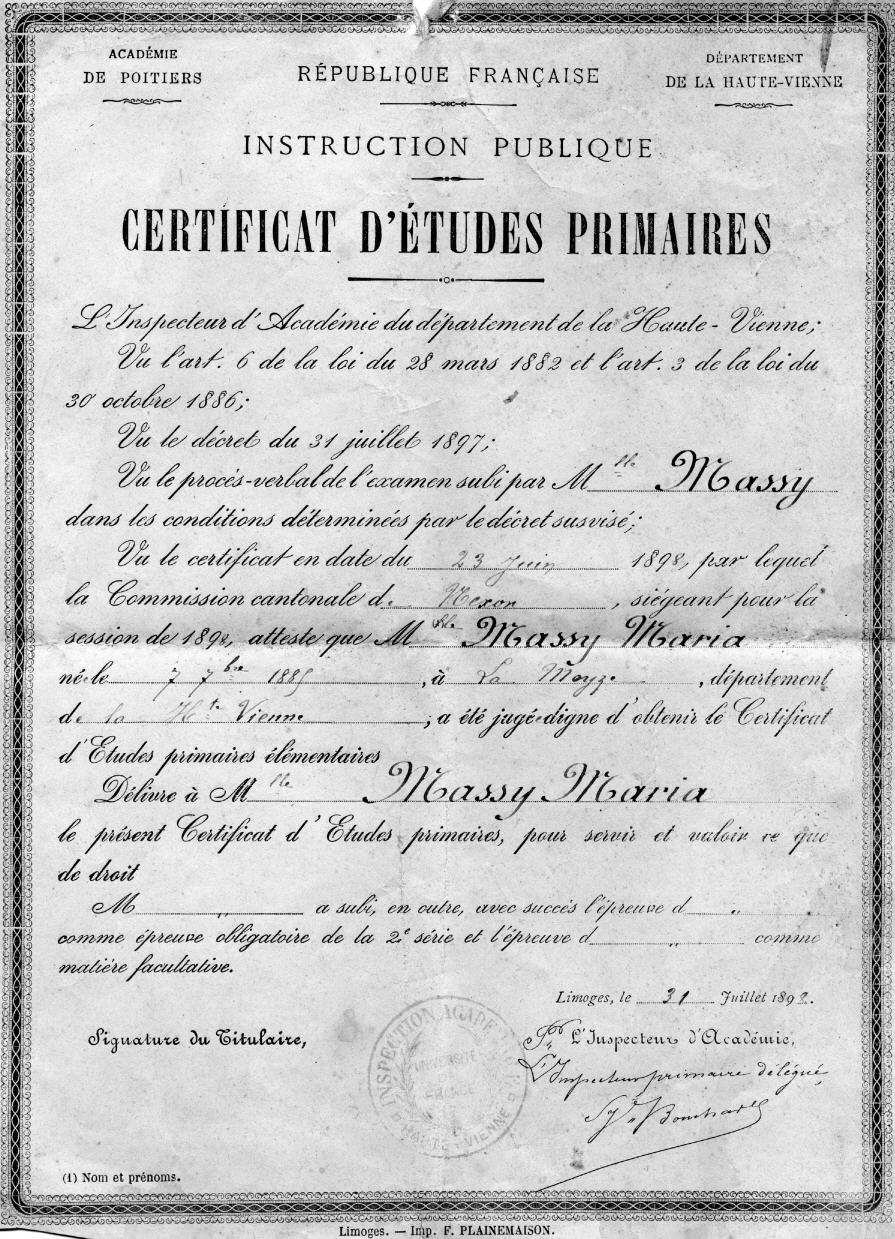 ACADÉMIE
DE POITIERS
RÉPUBLIQUE FRANÇAISE
DÉPARTEMENT
DE LA HAUTE-VIENNE
INSTRUCTION PUBLIQUE
CERTIFICAT D'ÉTUDES PRIMAIRES
L'Inspecteur d'Académie du département de la Haute-Vienne;
Vu l'art. 6 de la loi du 28 mars 1882 et l'art. 3 de la loi du
30 octobre 1886;
Vu le décret du 31 juillet 1897;
Vu le procés-verbal de l'examen subi par Mlle Massy
dans les conditions déterminées par le décret susvisé;
Vu le certificat en date du 23 Juin 1898, par lequel
la Commission cantonale de Nexon, siégeant pour la
session de 1898, atteste que Mlle Massy Maria
née le 7 7bre 1885, à La Meyze, département
de la Hte Vienne; a été jugée digne d'obtenir le Certificat
d'Etudes primaires élémentaires
Délivré à Mlle Massy Maria
le présent Certificat d'Etudes primaires, pour servir et valoir ce que
de droit
M „ a subi, en outre, avec succés l'épreuve d „
comme épreuve obligatoire de la 2e série et l'épreuve d „ comme
matiére facultative.
Limoges, le 31 Juillet 1898.
Signature du Titulaire,
Pr L'Inspecteur d'Académie,
L'Inspecteur primaire délégué,
INSPECTION ACADÉ
UNIVERSITÉ
FRANCE
HAUTE-VIENNE
(1) Nom et prénoms.
Limoges. — Imp. F. PLAINEMAISON.